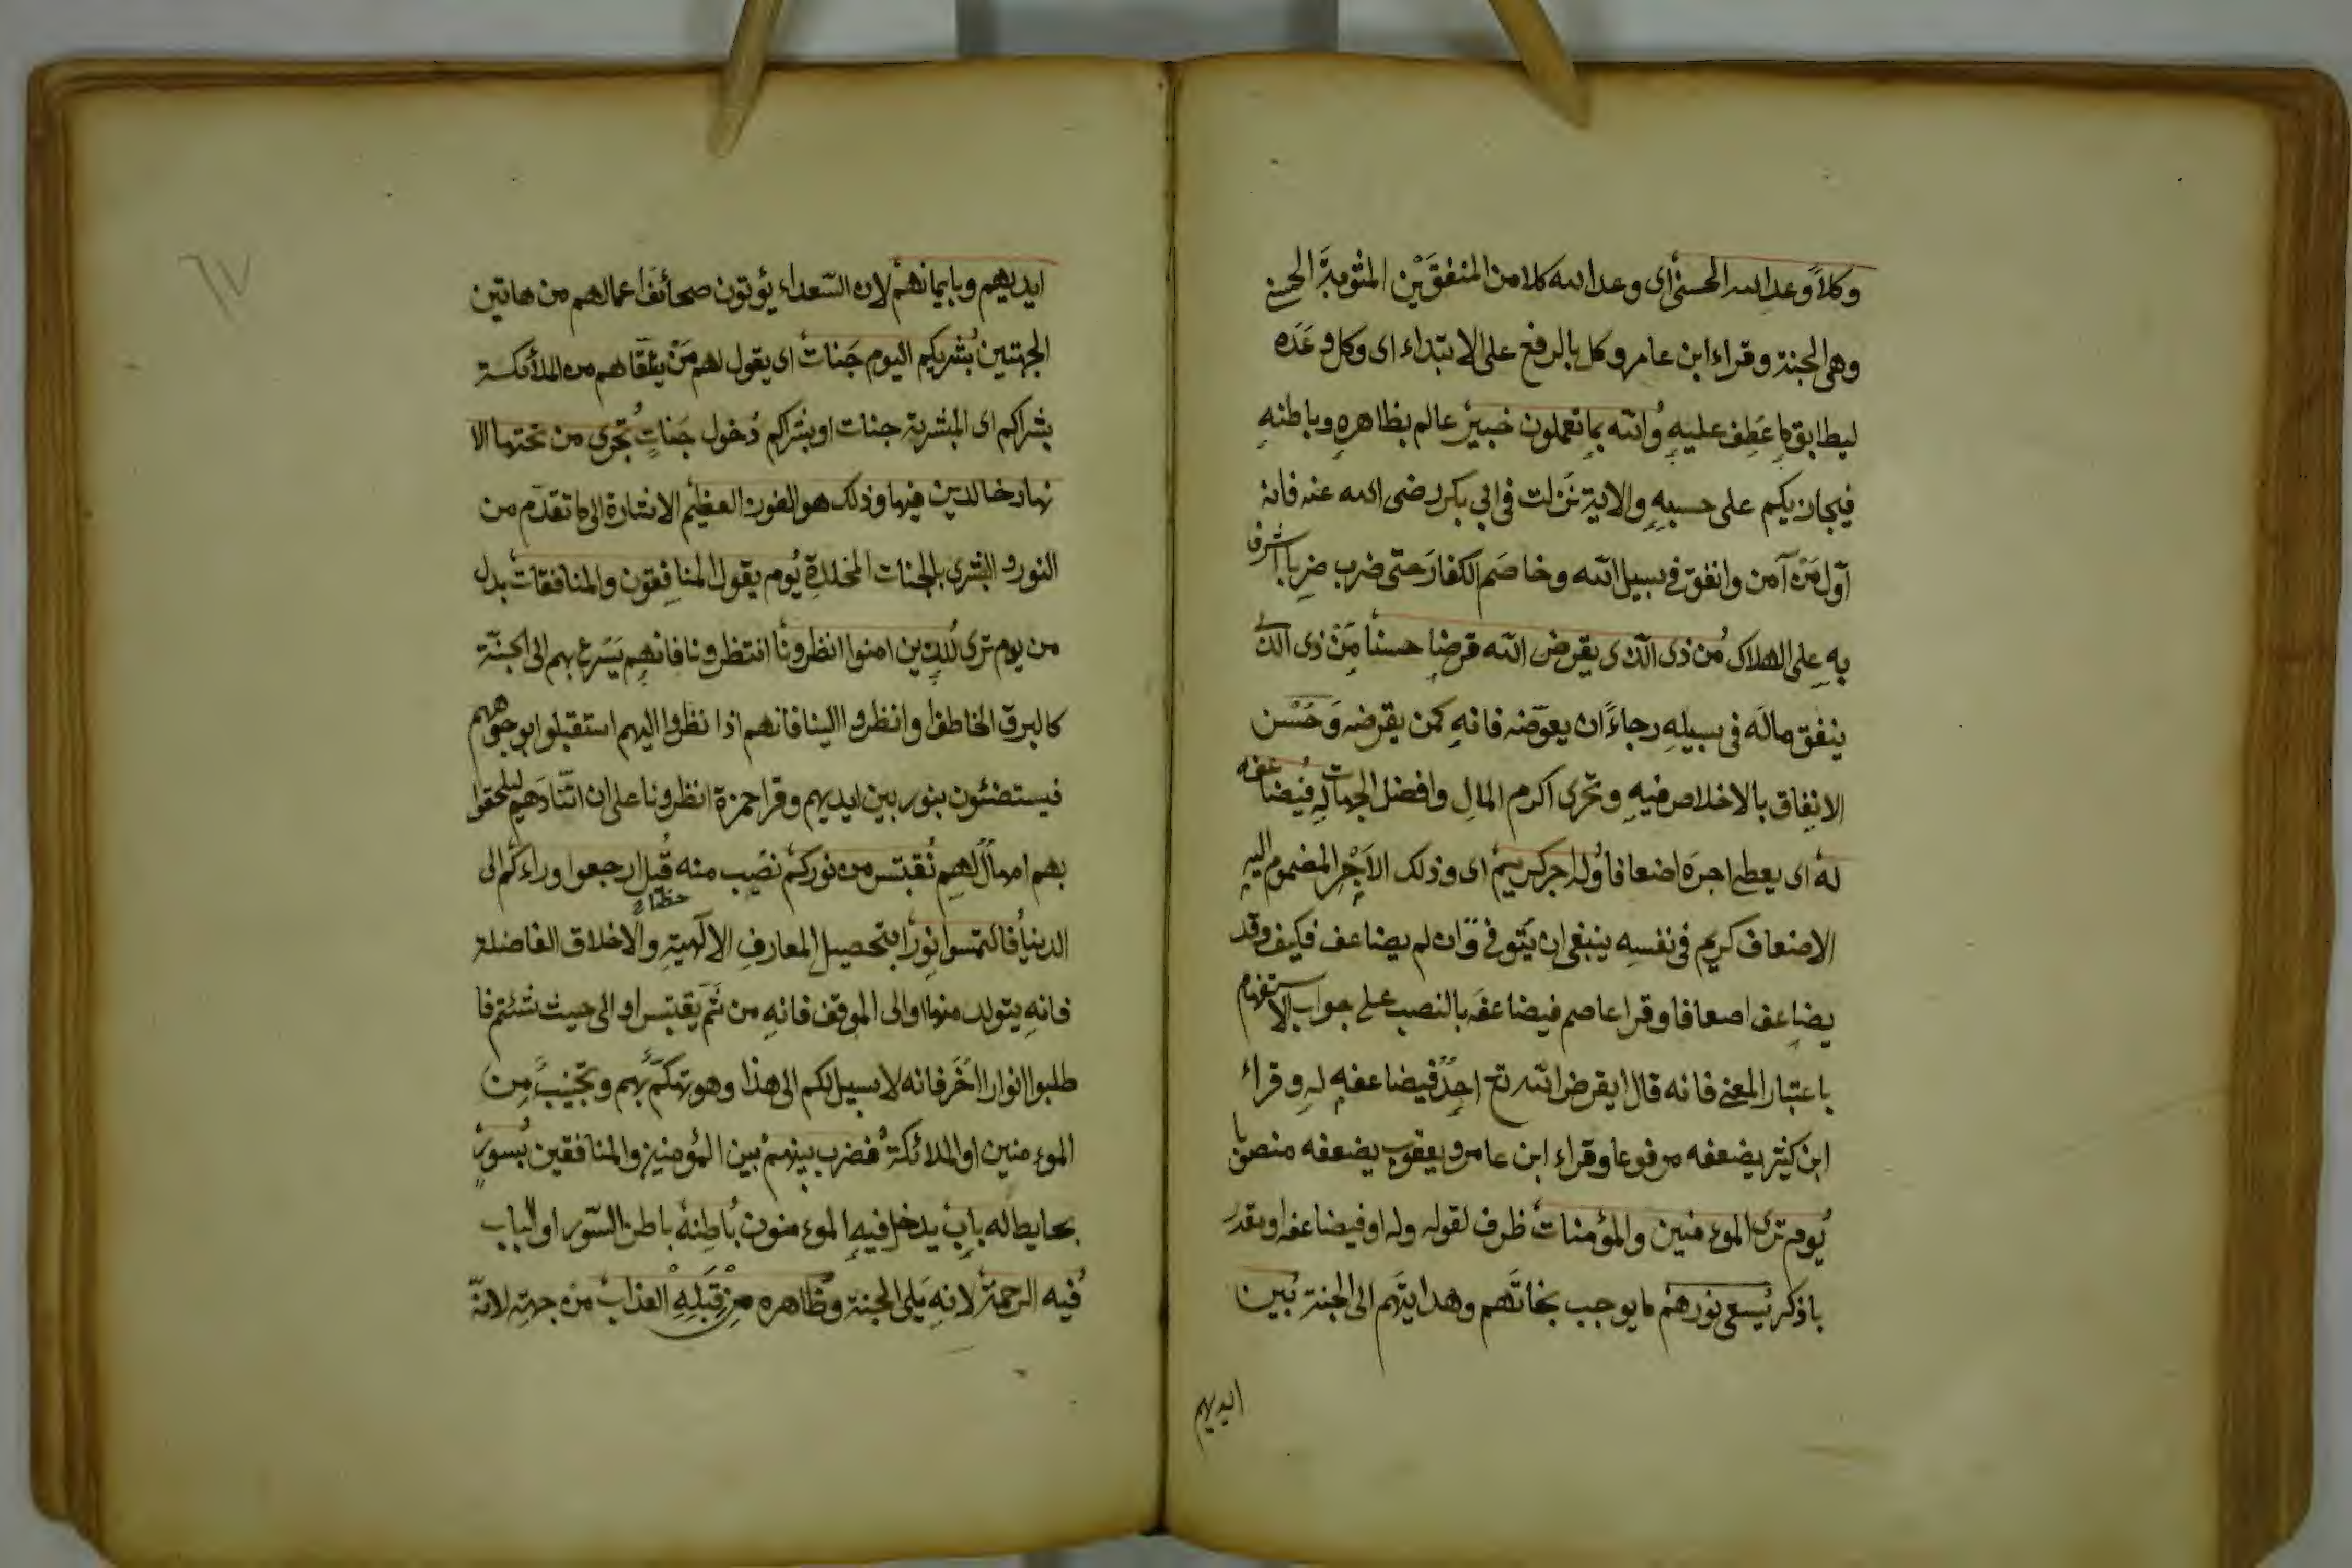 وكلاً وعد الله الحسنى اى وعد الله كلا من المنفقَيْن المثوبة الحسنى
وهى الجنة وقراء ابن عامر وكل بالرفع على الابتداء اى وكل وَعَدَه
ليطابق ما عَطِف عليهِ والله بما تعملون خبير عالم بظاهرهِ وباطنهِ
فيجازيكم على حسبهِ والاية نَزلت فى ابى بكر رضى الله عنه فانه
اوّل مَنْ آمن وانفق فى سبيل الله وخاصَم الكفارَ حتى ضرب ضربا اشرف
بهِ على الهلاك من ذى الّذى يقرض الله قرضا حسنا مَنْ ذى الذى
ينفق مالَه فى سبيلهِ رجاءً ان يعوّضه فانهِ كمن يقرضه وَحُسْن
الانفاق بالاخلاص فيهِ وتحرى اكرم المالِ وافضل الجهات لهِ فيضاعفه
له اى يعطى اجرَه اضعافا وله اجر كريم اى وذلك الاَجْر المضموم اليهِ
الاضعاف كريم فى نفسِه ينبغى ان يَتَوفىّ وَان لم يضاعف فكيف وقد
يضاعف اضعافا وقرا عاصم فيضاعفَه بالنصب على جواب الاستفهام
باعتبار المعنى فانه قال ايقرض الله تع احدٌ فيضاعفه له وقراء
ابن كثير يضعفه مرفوعا وقراء ابن عامر ويعقوب يضعفه منصوبا
يوم ترى الموء منين والمؤمنات ظرف لقوله وله او فيضاعفه او مقدر
باذكر يسعى نورهم ما يوجب نجاتَهم وهدايتَهم الى الجنة بين
ايديهم
ايديهم وبايمانهم لان السّعداء يؤتون صحائفَ اعمالهم من هاتين
الجهتين بُشريكم اليوم جَنات اى يقول لهم مَنْ يتلقّاهم من الملائكة
بشراكم اى المبشربه جنات او بشراكم دُخول جَناتٍ تجرى من تحتها الا
نهار خالدين فيها وذلك هو الفوز العظيم الاشارة الى ما تقدّم من
النور و البشرى بالجنات المخلدةِ يوم يقول المنافِقون والمنافقات بدل
من يوم ترى للذين امنوا انظرونا انتظرونا فانهم يَسْرع بهم الى الجنّة
كالبرق الخاطف او انظروا الينا فانهم اذا نظروا اليهم استقبلوا بوجوههم
فيستضئون بنور بين ايديهم وقرا حمزة انظرونا على ان اتّئادَهم ليلحقوا
بهم امهالٌ لهم نقتبس من نوركم نصب منه قيل ارجعوا وراءكم الى
الدنيا فالتمسوا نورا بتحصيل المعارفِ الالٓهيةِ والاخلاق الفاضلة
فانهِ يتولد منها او الى الموقف فانهِ من ثَمّ يقتبس او الى حيث شئتم فا
طلبوا انوارا اخَر فانه لا سبيل لكم الى هذا وهو تهكّمٌ بهم وتخييبٌ من
الموء منين او الملائكة فضرب بينهم بين المؤمنين والمنافقين بسور
بحايط له باب يدخل فيهِ الموء منون باطنه باطن السّور او الباب
فيه الرحمة لانهِ يَلى الجنة وظاهره مِن قِبَلِهِ العذاب من جهته لانّه